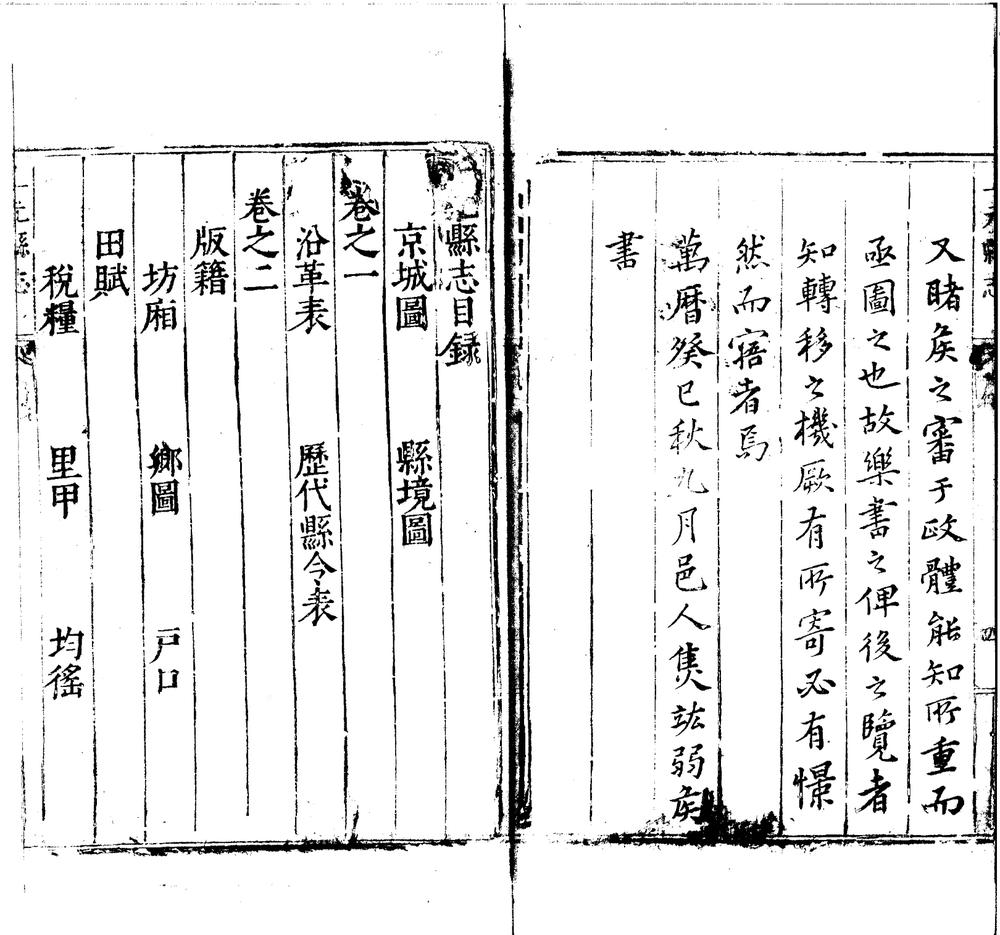 又睹矦之審于政體能知所重而
亟圖之也故樂書之俾後之覽者
知轉移之機厥有所寄必有憬
然而寤者焉
萬曆癸巳秋九月邑人焦竑弱矦
書
縣志目録
京城圖　縣境圖
卷之一
沿革表　歷代縣令表
卷之二
版籍
坊廂　鄉圖　戸口
田賦
稅糧　里甲　均徭
元縣志